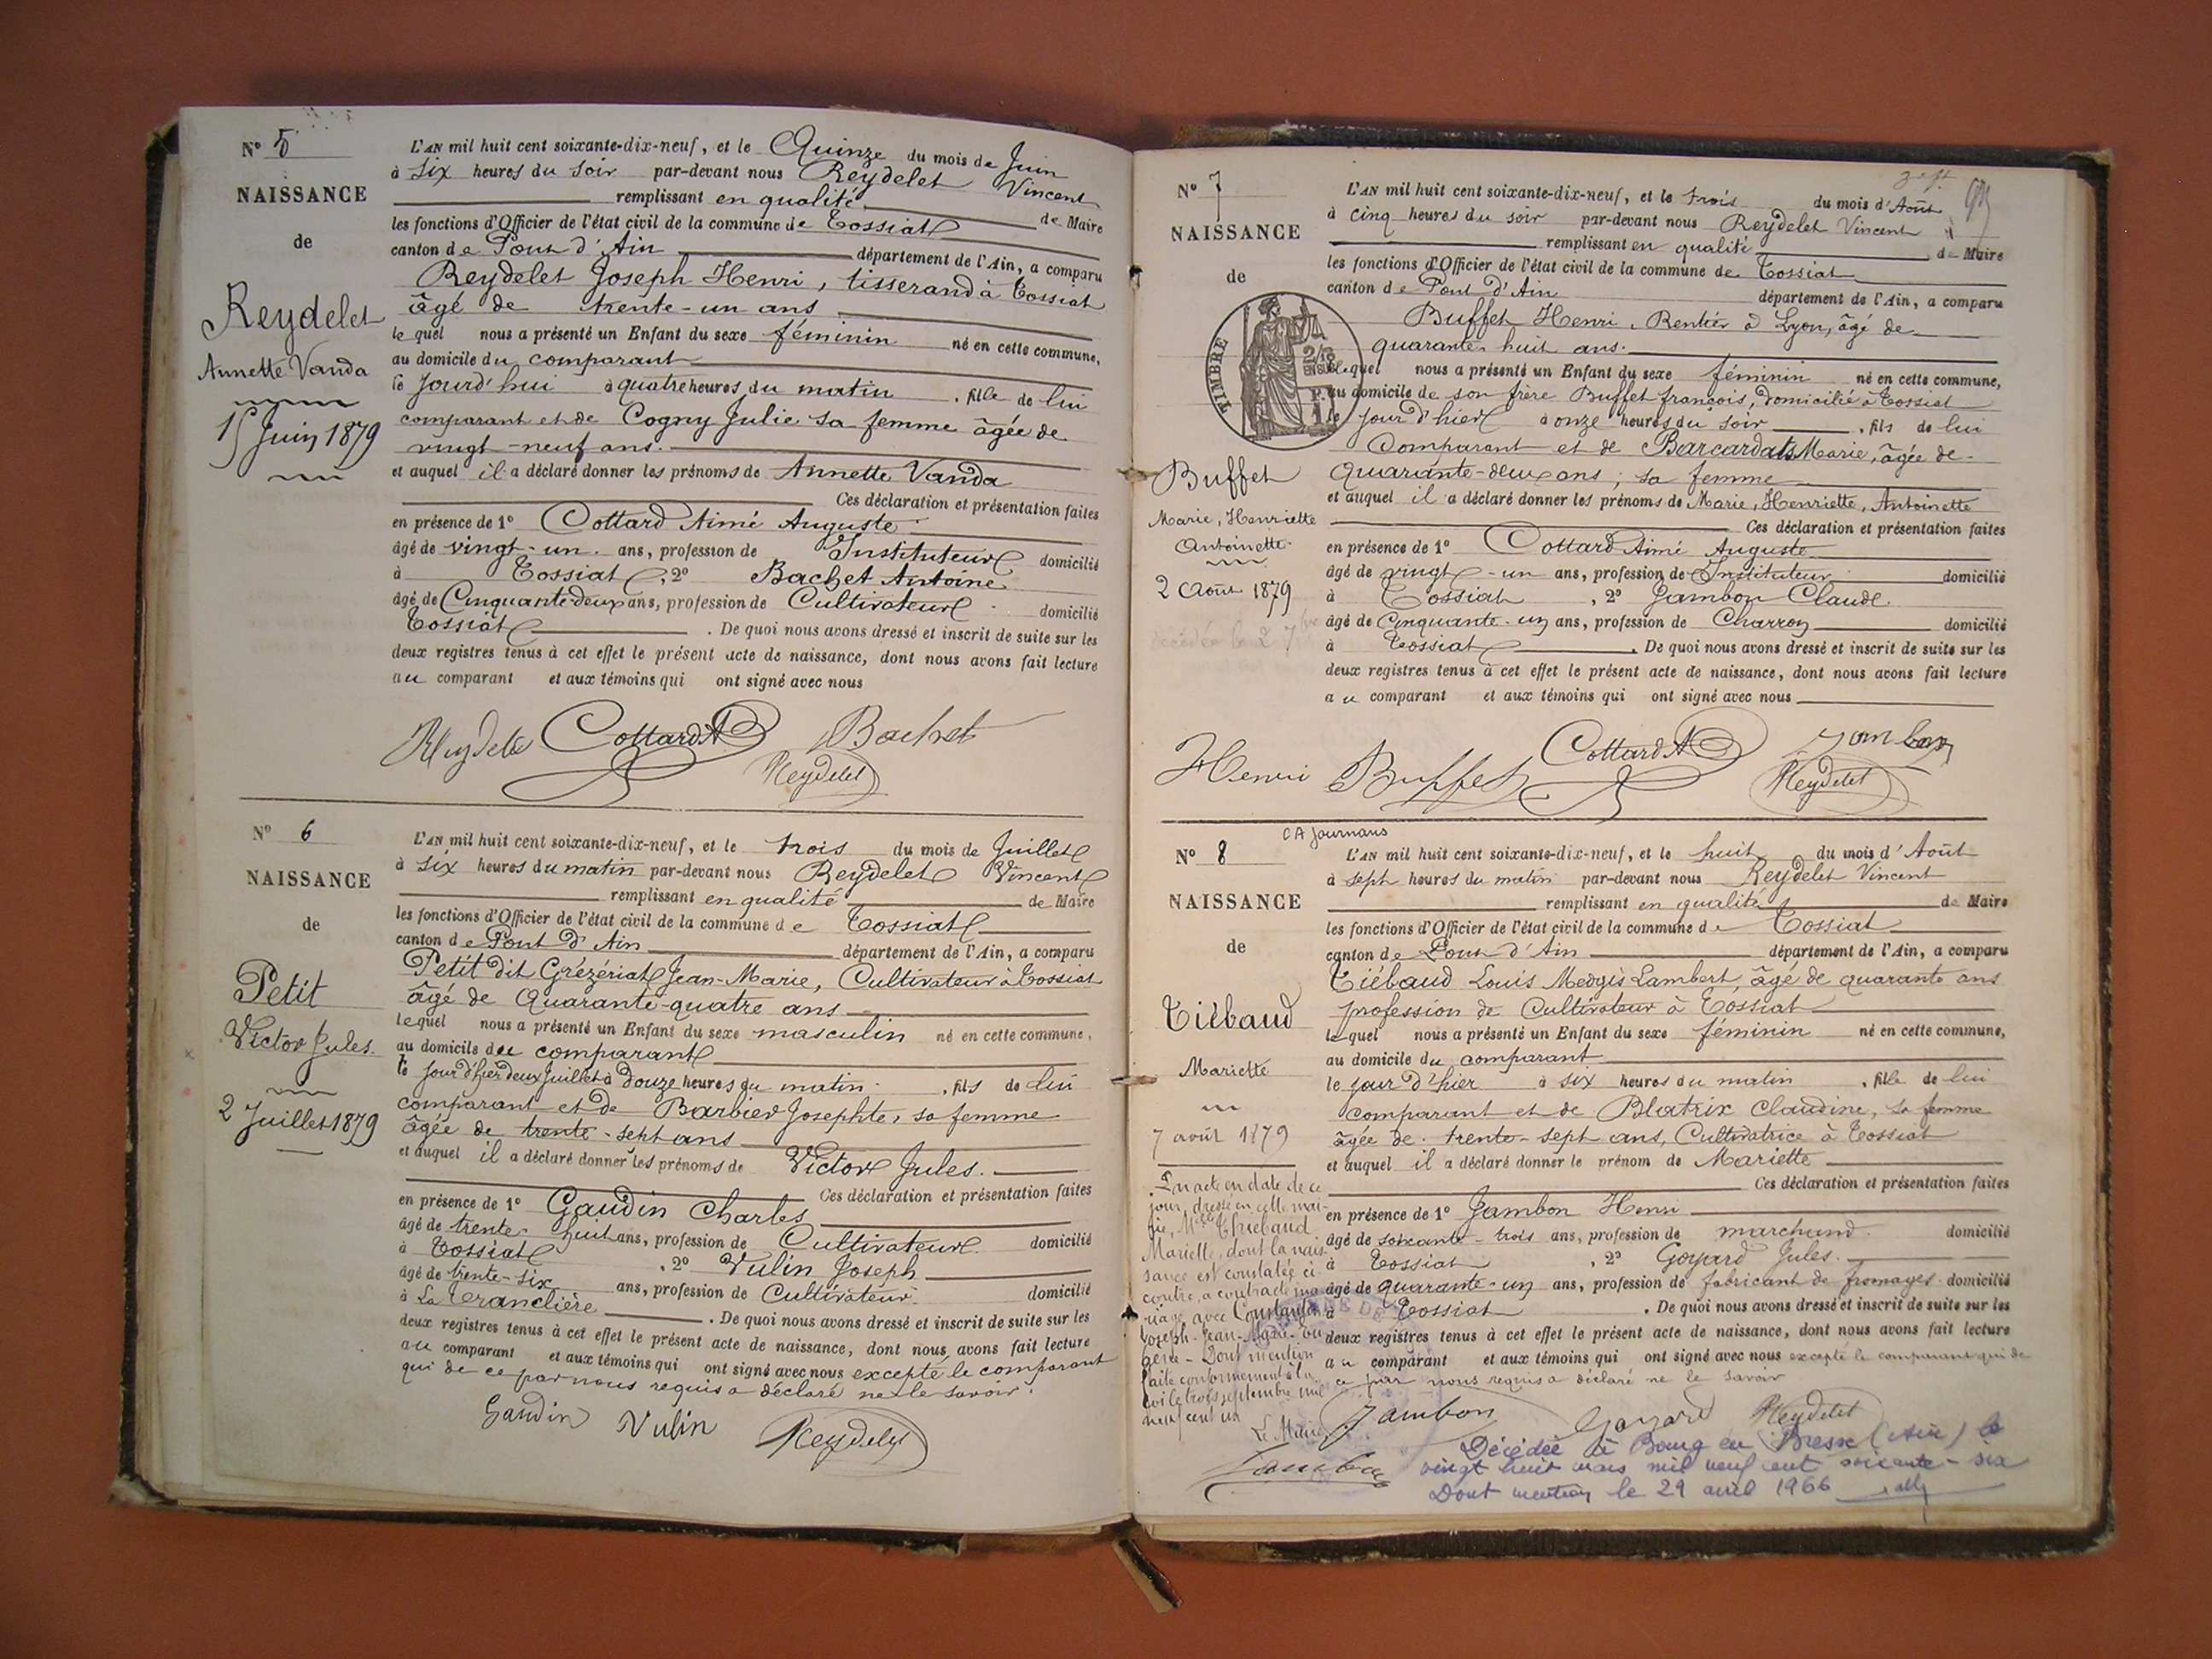 N° 5
NAISSANCE
de
Reydelet
Annette Vanda
15 Juin 1879
L'AN mil huit cent soixante-dix-neuf, et le Quinze du mois de Juin
à six heures du soir par-devant nous Reydelet Vincent
remplissant en qualité de Maire
les fonctions d'Officier de l'état civil de la commune de Tossiat
canton de Pont d'Ain département de l'Ain, a comparu
Reydelet Joseph Henri, tisserand à Tossiat
âgé de trente-un ans
lequel nous a présenté un Enfant du sexe féminin né en cette commune,
au domicile du comparant
le jourd'hui à quatre heures du matin, fille de lui
comparant et de Cogny Julie sa femme âgée de
vingt-neuf ans.
et auquel il a déclaré donner les prénoms de Annette Vanda
Ces déclaration et présentation faites
en présence de 1° Cottard Aimé Auguste
âgé de vingt-un ans, profession de Instituteur domicilié
à Tossiat, 2° Bachet Antoine
âgé de Cinquante-deux ans, profession de Cultivateur domicilié
Tossiat. De quoi nous avons dressé et inscrit de suite sur les
deux registres tenus à cet effet le présent acte de naissance, dont nous avons fait lecture
au comparant et aux témoins qui ont signé avec nous
Reydelet Cottard A Bachet
Reydelet
N° 6
NAISSANCE
de
Petit
Victor Jules
2 Juillet 1879
L'AN mil huit cent soixante-dix-neuf, et le trois du mois de Juillet
à six heures du matin par-devant nous Reydelet Vincent
remplissant en qualité de Maire
les fonctions d'Officier de l'état civil de la commune de Tossiat
canton de Pont d'Ain département de l'Ain, a comparu
Petit dit Grézériat Jean-Marie, Cultivateur à Tossiat
âgé de Quarante-quatre ans
lequel nous a présenté un Enfant du sexe masculin né en cette commune,
au domicile du comparant
le jour d'hier deux Juillet à Douze heures du matin, fils de lui
comparant et de Barbier Josephte, sa femme
âgée de trente-sept ans
et auquel il a déclaré donner les prénoms de Victor Jules.
Ces déclaration et présentation faites
en présence de 1° Gaudin Charles
âgé de trente-huit ans, profession de Cultivateur domicilié
à Tossiat, 2° Vulin Joseph
âgé de trente-six ans, profession de Cultivateur domicilié
à La Tranclière. De quoi nous avons dressé et inscrit de suite sur les
deux registres tenus à cet effet le présent acte de naissance, dont nous avons fait lecture
au comparant et aux témoins qui ont signé avec nous excepté le comparant
qui de ce par nous requis a déclaré ne le savoir.
Gaudin Vulin Reydelet
N° 7
NAISSANCE
de
TIMBRE
Buffet
Marie, Henriette
Antoinette
2 Août 1879
décédée le 2 7bre
L'AN mil huit cent soixante-dix-neuf, et le trois du mois d'Août
à cinq heures du soir par-devant nous Reydelet Vincent
remplissant en qualité de Maire
les fonctions d'Officier de l'état civil de la commune de Tossiat
canton de Pont d'Ain département de l'Ain, a comparu
Buffet Henri, Rentier à Lyon, âgé de
quarante-huit ans.
lequel nous a présenté un Enfant du sexe féminin né en cette commune,
au domicile de son frère Buffet françois, domicilié à Tossiat
le jour d'hier à onze heures du soir, fils de lui
Comparant et de Marie, âgée de
Quarante-deux ans; sa femme
et auquel il a déclaré donner les prénoms de Marie, Henriette, Antoinette
Ces déclaration et présentation faites
en présence de 1° Cottard Aimé Auguste
âgé de vingt-un ans, profession de Instituteur domicilié
à Tossiat, 2° Jambon Claude.
âgé de Cinquante-un ans, profession de Charron domicilié
à Tossiat. De quoi nous avons dressé et inscrit de suite sur les
deux registres tenus à cet effet le présent acte de naissance, dont nous avons fait lecture
au comparant et aux témoins qui ont signé avec nous
Henri Buffet Cottard A Jambon
Reydelet
CA Journans
N° 8
NAISSANCE
de
Tiébaud
Mariette
7 août 1879
L'AN mil huit cent soixante-dix-neuf, et le huit du mois d'Août
à sept heures du matin par-devant nous Reydelet Vincent
remplissant en qualité de Maire
les fonctions d'Officier de l'état civil de la commune de Tossiat
canton de Pont d'Ain département de l'Ain, a comparu
Tiébaud Louis Lambert, âgé de quarante ans
profession de Cultivateur à Tossiat
lequel nous a présenté un Enfant du sexe féminin né en cette commune,
au domicile du comparant
le jour d'hier à six heures du matin, fille de lui
comparant et de Blatrix Claudine, sa femme
âgée de trente-sept ans, Cultivatrice à Tossiat
et auquel il a déclaré donner le prénom de Mariette
Ces déclaration et présentation faites
en présence de 1° Jambon Henri
âgé de soixante-trois ans, profession de marchand domicilié
à Tossiat, 2° Goyard Jules.
âgé de quarante-un ans, profession de fabricant de fromages domicilié
à Tossiat. De quoi nous avons dressé et inscrit de suite sur les
deux registres tenus à cet effet le présent acte de naissance, dont nous avons fait lecture
au comparant et aux témoins qui ont signé avec nous excepté le comparant qui de
ce par nous requis a déclaré ne le savoir
Jambon Goyard Reydelet
Par acte en date de ce
jour, dressé en cette mai-
rie, Mlle Thiébaud
Mariette, dont la nais-
sance est constatée ci-
contre, a contracté ma-
riage avec
Joseph-Jean-Marie-Eu-
gène - Dont mention
faite conformément à la
loi le trois septembre mil
neuf cent un
Le Maire
Jambon
Décédée à Bourg en Bresse (Ain) le
vingt huit mars mil neuf cent soixante-six
Dont mention le 29 avril 1966